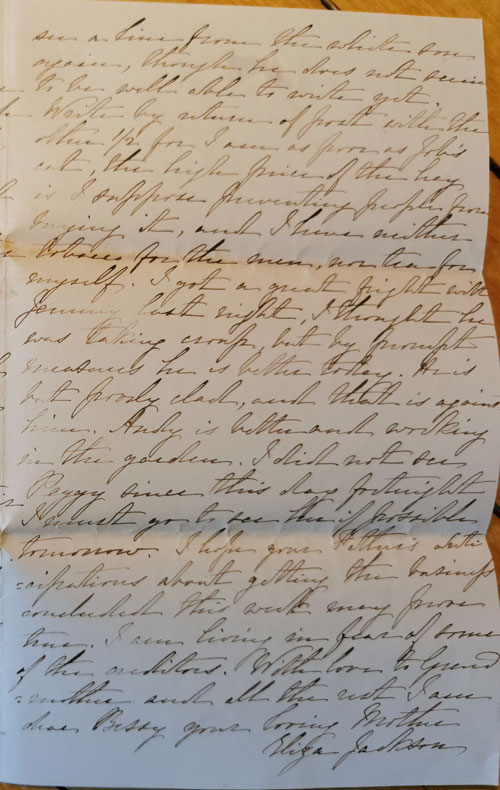 see a line from the white son
again, though he does not seem
to be well able to write yet.
Write by return of post with the
other 1/2 for I am as poor as Job's
cat, the high price of the hay
is I suppose preventing people from
buying it, and I have neither
tobacco for the men, nor tea for
myself. I got a great fright with
Jemmy last night, I thought he
was taking croup, but by prompt
measures he is better today. He is
but poorly clad, and that is against
him. Andy is better and working
in the garden. I did not see
Peggy since this day fortnight
I must go to see her if possible
tomorrow. I hope your Father's anti
=cipations about getting the business
concluded this week may prove
true. I am living in fear of some
of the creditors. With love to Grand
=mother and all the rest I am
dear Bessy your loving Mother
Eliza Jackson